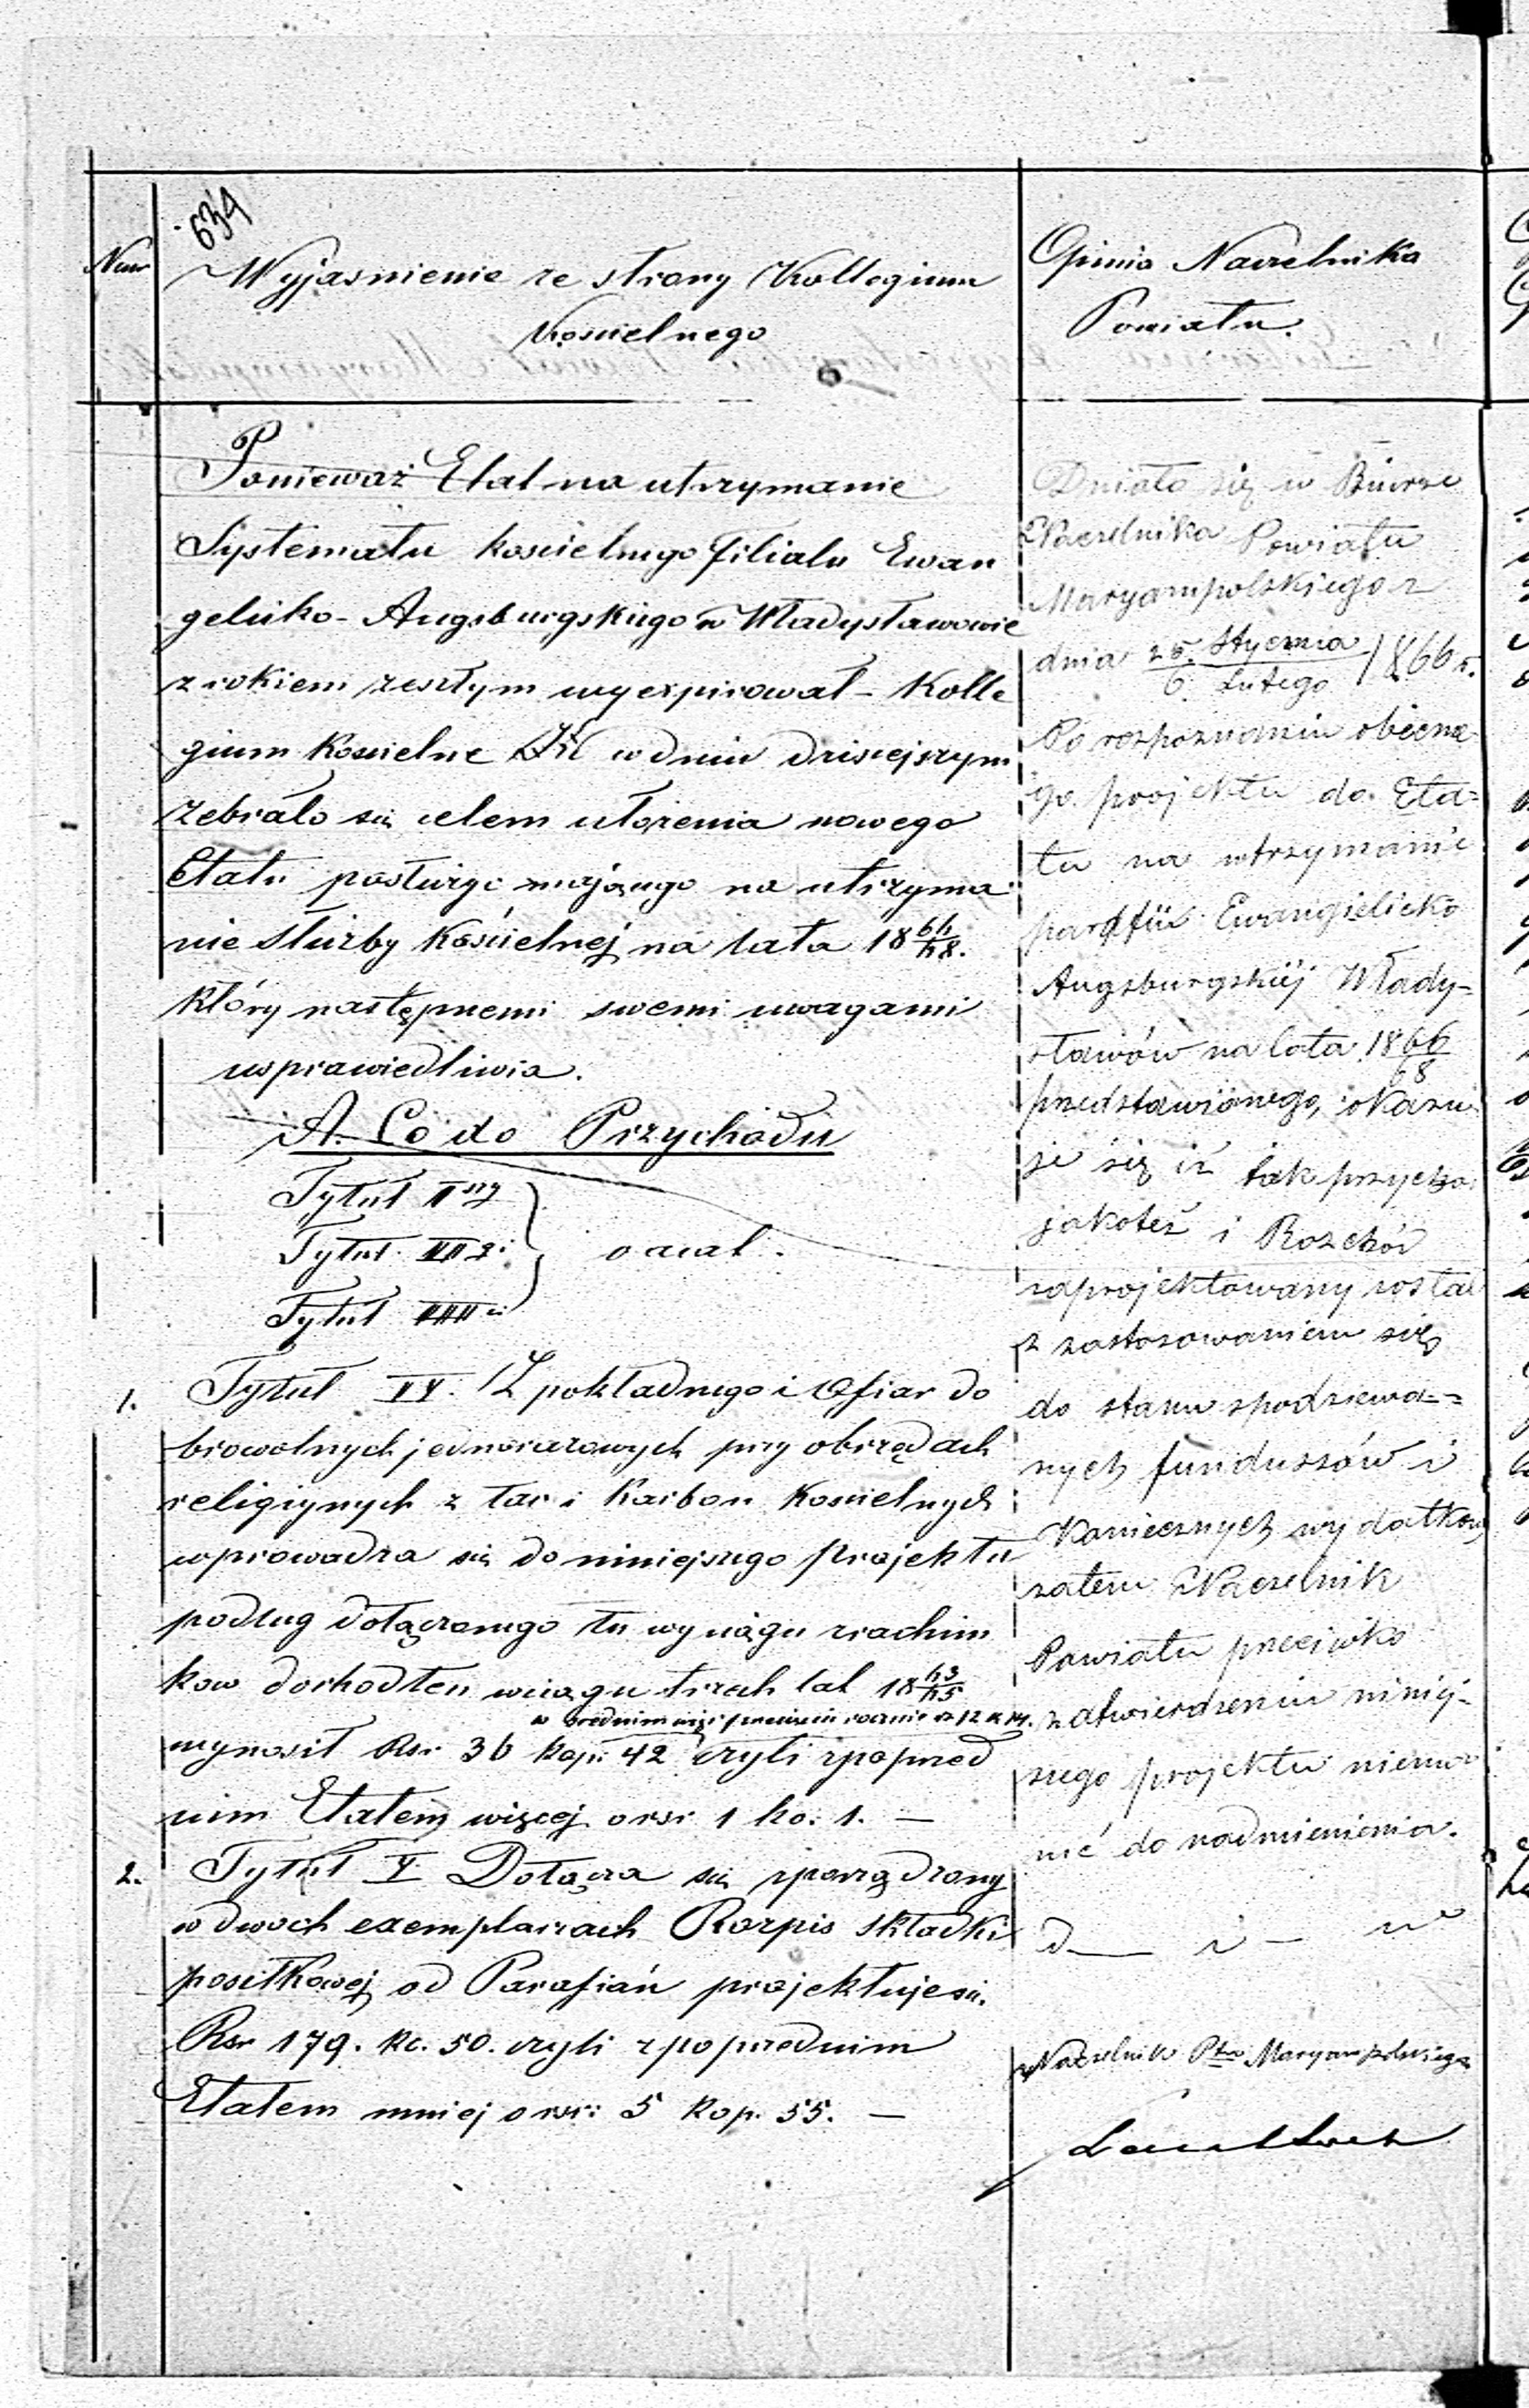 634
Num
Wyjasnienie ze strony Kollegium
Kościelnego
Ponieważ Etat na utrzymanie
Systematu kościelnego filialu Ewan
gelicko-Augsburgskiego w Władysławowie
z rokiem zeszłym wyexpirował - Kolle
gium Kościelne w dniu dzisiejszym
zebrało się celem ułożenia nowego
Etatu posłużyć mającego na utrzyma
nie służby Kościelnej na lata 18 66/68.
który następnemi swemi uwagami
usprawiedliwia.
A. Co do Przychodu
Tytuł I
Tytuł II
Tytuł III
vacat.
1. Tytuł IV. Z pokładnego i Ofiar do
browolnych jednorazowych przy obrzędach
religijnych z tac i Karbon Kościelnych
wprowadza się do niniejszego projektu
podług dołączonego tu wyciągu z rachun
kow dochod ten w ciągu trzech lat 18 63/65
w średnim więc przecięciu rocznie rs 12 k 14.
wynosił Rsr 36 kop: 42 czyli z poprzed
nim Etatem więcej o rsr 1 ko. 1. —
2. Tytuł V Dołącza się sporządzony
w dwoch exemplarzach Rozpis składki
posiłkowej od Parafian projektuje się.
Rsr 179. kc. 50. czyli z poprzednim
Etatem mniej o rsr: 5 kop. 55. —
Opinia Naczelnika
Powiatu.
Działo się w Biurze
Naczelnika Powiatu
Maryampolskiego z
dnia 25. Stycznia / 6 Lutego 1866 r.
Po rozpoznaniu obecne
go projektu do Eta=
tu na utrzymanie
parafii Ewangielicko
Augsburgskiej Włady-
sławów na lata 18 66/68
przedstawionego, okazu
je się iż tak przycho
jakoteż i Rozchód
zaprojektowany został
z zastosowaniem się
do stanu spodziewa=
nych funduszów i
Koniecznych wydatków
zatem Naczelnik
Powiatu przeciwko
zatwierdzeniu niniej-
szego projektu niema
nic do nadmienienia.
Naczelnik Ptu Maryampolskiego